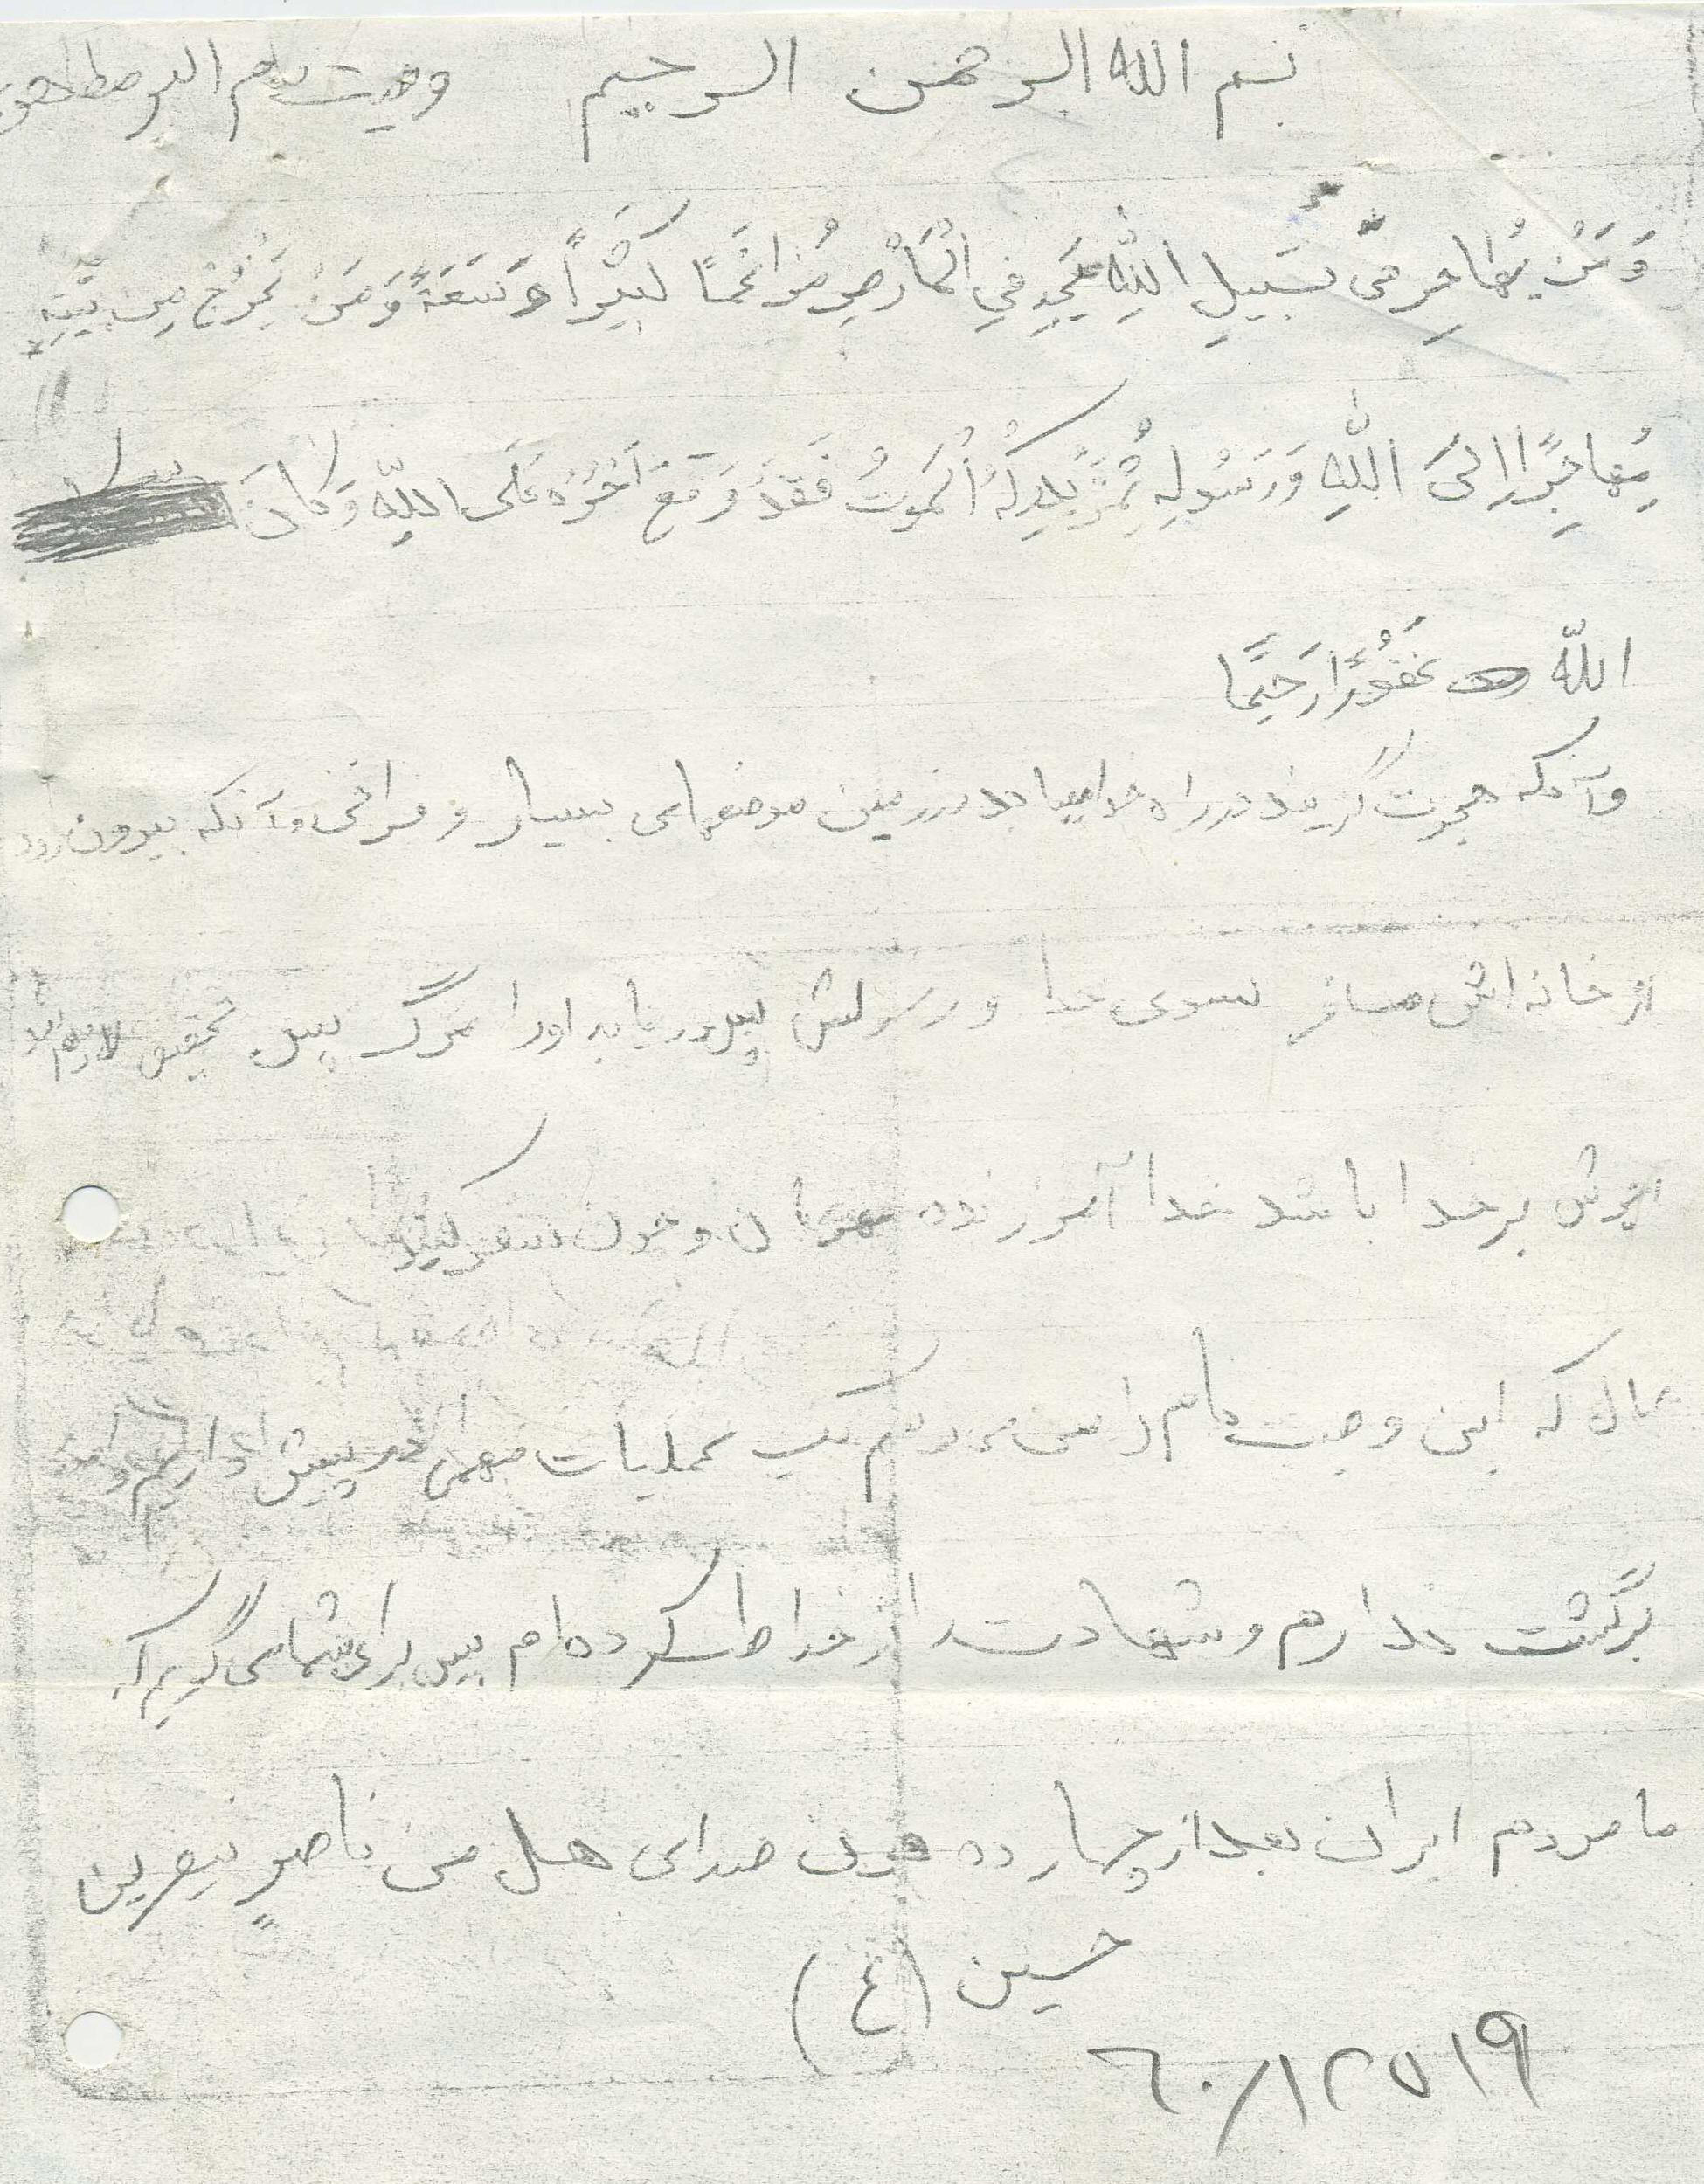 بسم الله الرحمن الرحیم وصیت نام
وَمَنْ یُهاجِر فی سَبیلِ اللهِ یَجِد فِي الْمَارْضِ مُرَاغَمًا کَثیْراً وَ سَعَةً وَ مَنْ یَخْرُجْ مِن بَیْتِهِ
مُهاجِرًا الیَ اللهِ وَ رَسُولِهِ ثُمَّ یُدرِکْهُ الْمَوتُ فَقَدْ وَقَعَ اَجْرُهُ عَلَی اللهِ وَ کانَ
اللهُ غَفُوْرًا رَحیمًا
و آنکه هجرت گزیند در راه خدا میابد در زمین موضعهای بسیار و فراخی و آنکه بیرون رود
از خانه اش مسافر بسوی خدا و رسولش پس دریابد او را مرگ پس تحقیق لازم
اجرش بر خدا باشد خدا آمرزنده مهربان و چون سفر کنید
حال که این وصیت نام را می نویسم یک عملیات مهمی در پیش داریم و امید
برگشت ندارم و شهادت را از خدا طلب کرده ام پس برای شما می گویم که
ما مردم ایران بعد از چهارده قرن صدای هل من ناصرٍ ینصرین
حسین (ع)
۱۹